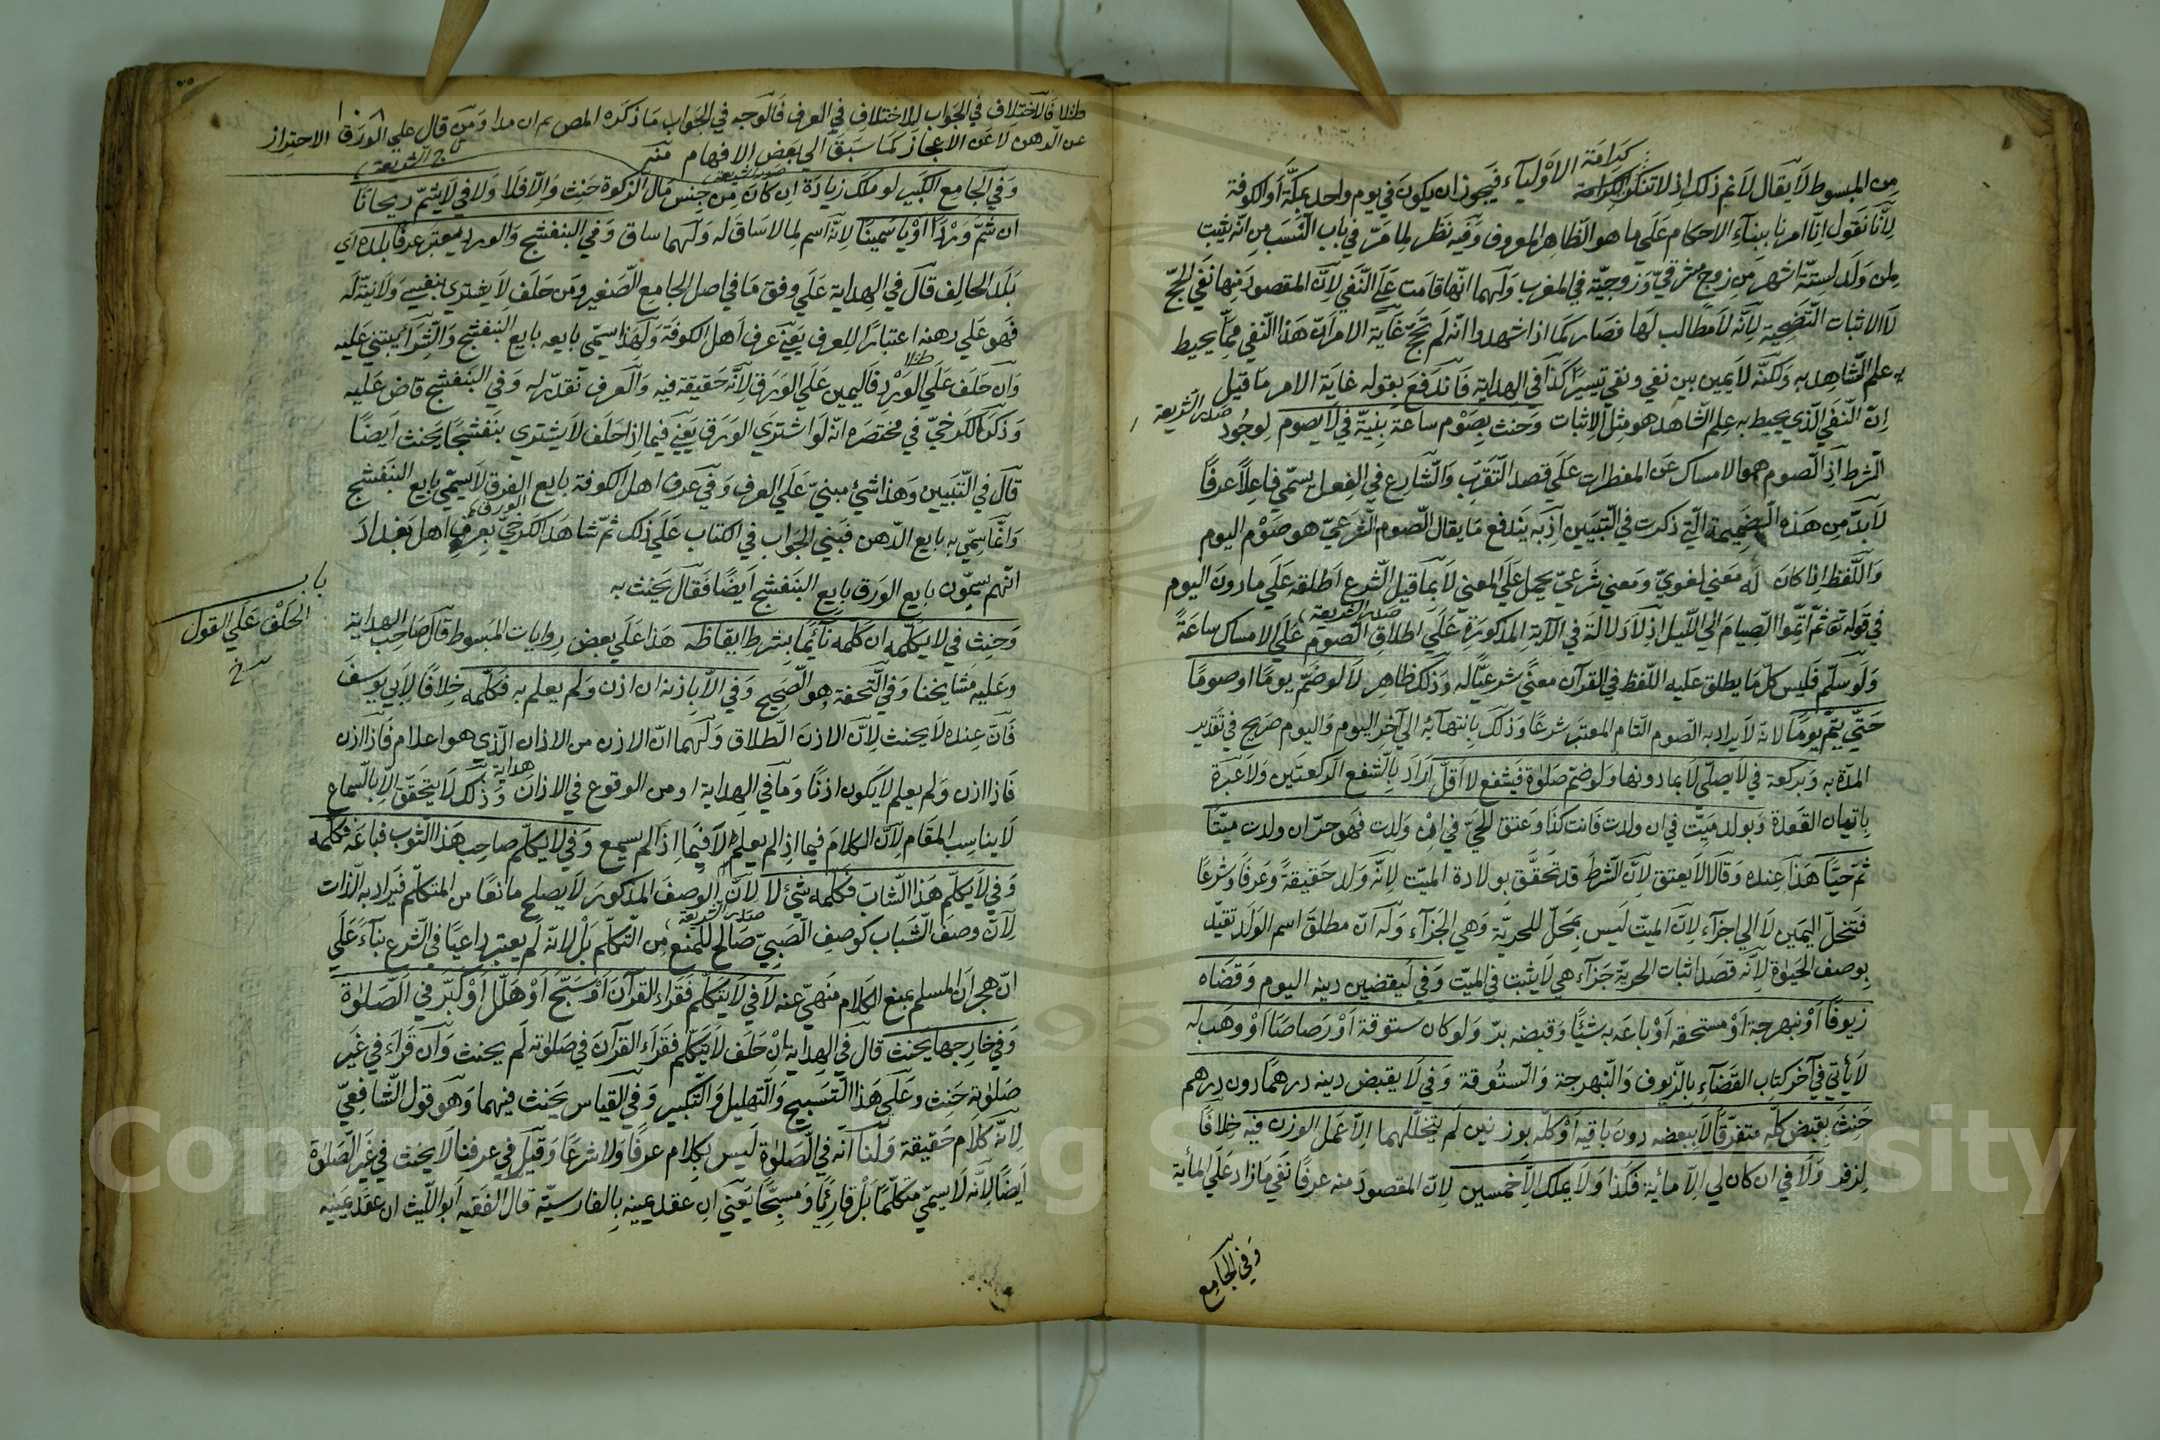 كرامة الاولياء
من المبسوط لا يقال لا نم ذلك اذ لا تنكر الكرامة فيجوز ان يكون في يوم واحد بمكة او الكوفة
لانا نقول انا امرنا ببناء الاحكام علي ما هو الظاهر المعروف وفيه نظر لما مر في باب النسب من انه يثبت
لمن ولد لستة اشهر من زوج مشرقي وزوجية في المغرب ولهما انها قامت علي النفي لان المقصود منها نفي الحج
لا الاثبات التضحية لانه لا مطالب لها فصار كما اذا شهدوا انه لم يحج غاية الامر ان هذا النفي مما يحيط
به علم الشاهد به ولكنه لا يميز بين نفي ونفي تيسيرا كذا في الهداية فاندفع بقوله غاية الامر ما قيل
صدر الشريعة
ان النفي الذي يحيط به علم الشاهد هو مثل الاثبات وحنث بصوم ساعة بنية في لا يصوم لوجود
الشرط اذ الصوم هو الامساك عن المفطرات علي قصد التقرب والشارع في الفعل يسمي فاعلا عرفا
لا بد من هذه الضميمة التي ذكرت في التبيين اذ به يندفع ما يقال الصوم الشرعي هو صوم اليوم
واللفظ اذا كان له معني لغوي ومعني شرعي يحمل علي المعني لا بما قيل الشرع اطلقه علي ما دون اليوم
صدر الشريعة
في قوله تع ثم اتموا الصيام الي الليل اذ لا دلالة في الآية المذكورة علي اطلاق الصوم علي الامساك ساعة
ولو سلم فليس كل ما يطلق عليه اللفظ في القرآن معني شرعيا له وذلك ظاهر لا لو ضم يوما او صوما
حتي يتم يوما لانه لا يراد به الصوم التام المعتبر شرعا وذلك بانتهائه الي آخر اليوم واليوم صريح في تقدير
المدة به وبركعة في لا يصلي لا بما دونها ولو ضم صلوة فبشفع لا اقل اراد بالشفع الركعتين ولا عبرة
باتيان القعدة وبولد ميت في ان ولدت فانت كذا وعتق الحي في ان ولدت فهو حر ان ولدت ميتا
ثم حيا هذا عنده وقالا لا يعتق لان الشرط قد تحقق بولادة الميت لانه ولد حقيقة وعرفا وشرعا
فتنحل اليمين لا الي اجزاء لان الميت ليس بمحل للحرية وهي الجزاء وله ان مطلق اسم الولد تقيد
بوصف الحيوة لانه قصد اثبات الحرية جزاء هي لا يثبت في الميت وفي ليقضين دينه اليوم وقضاه
زيوفا او نبهرجة او مستحقه او باعه به شيئا وقبضه بر ولو كان ستوقة او رصاصا او وهب له
لا يأتي في آخر كتاب القضاء بالزيوف والنبهرجة والستوقة وفي لا يقبض دينه درهما دون درهم
حنث بقبض كله متفرقا لا ببعضه دون باقيه او كله بوزنين لم يتخللهما الا عمل الوزن فيه خلافا
لزفر ولا في ان كان لي الا مائة فكذا ولا يملك الا خمسين لان المقصود منه عرفا نفي ما زاد علي المأية
وفي الجامع
طلا فالاختلاف في الجواب للاختلاف في العرف فالوجه في الجواب ما ذكره المص ومن قال علي الورق الاحتراز
تاج الشريعة
عن الدهن لا عن الاعجاز كما سبق الي بعض الافهام منه
صدر الشريعة
وفي الجامع الكبير لو ملك زيادة ان كان من جنس مال الزكوة حنث والا فلا ولا في لا يشم ريحانا
ان شم وردا او ياسمينا لانه اسم لما لا ساق له ولهما ساق وفي البنفشج والورد يعتبر عرف بلده اي
بلد الحالف قال في الهداية علي وفق ما في اصل الجامع الصغير ومن حلف لا يشتري بنفسج ولا نية له
فهو علي دهنه اعتبارا للعرف يعني عرف اهل الكوفة ولهذا سمي بايعه بايع البنفشج والشراء يبتني عليه
وان حلف علي الورد فاليمين علي الورق لانه حقيقة فيه والعرف تقدر له وفي البنفشج قاض عليه
وذكر الكرخي في مختصره انه لو اشتري الورق يعني فيما اذا حلف لا يشتري بنفشجا يحنث ايضا
قال في التبيين وهذا شئ مبني علي العرف وفي عرف اهل الكوفة بايع الورق لا يسمي بايع البنفشج
وانما سمي به بايع الدهن فبني الجواب في الكتاب علي ذلك ثم شاهد الكرخي بعرف اهل بغداد
انهم سمون بايع الورق بايع البنفشج ايضا فقال يحنث به
باب
الحلف علي القول
وحنث في لا يكلمه ان كلمه نائما بشرط ايقاظه هذا علي بعض روايات المبسوط قال صاحب الهداية
وعليه مشايخنا وفي التحفة هو الصحيح وفي الا باذنه ان اذن ولم يعلم به فكلمه خلافا لابي يوسف
فان عنده لا يحنث لان الاذن الطلاق ولهما ان الاذن من الاذان الذي هو اعلام فاذا اذن
هداية
فاذا اذن ولم يعلم لا يكون اذنا وما في الهداية او من الوقوع في الاذان وذلك لا يتحقق الا بالسماع
لا يناسب المقام لان الكلام فيما اذا لم يعلم لا فيما اذا لم يسمع وفي لا يكلم صاحب هذا الثوب فباعه فكلمه
وفي لا يكلم هذا الشاب فكلمه شيئ لا لان الوصف المذكور لا يصلح مانعا من المتكلم فيراد به الذات
صدر الشريعة
لان وصف الشباب كوصف الصبي صالح للمنع من التكلم بل لانه لم يعتبر داعيا في الشرع بناء علي
ان هجران المسلم بمنع الكلام منهي عنه لا في لا يتكلم فقراء القرآن او سبح او هلل او كبر في الصلوة
وفي خارجها يحنث قال في الهداية ان حلف لا يتكلم فقراء القرآن في صلوته لم يحنث وان قراء في غير
صلوته حنث وعلي هذا التسبيح والتهليل والتكبير وفي القياس يحنث فيهما وهو قول الشافعي
لانه كلام حقيقة ولنا انه في الصلوة ليس بكلام عرفا ولا شرعا وقيل في عرفنا لا يحنث في غير الصلوة
ايضا لانه لا يسمي متكلما بل قارئا ومسبحا يعني ان عقد يمينه بالفارسية قال الفقيه ابو الليث ان عقد يمينه